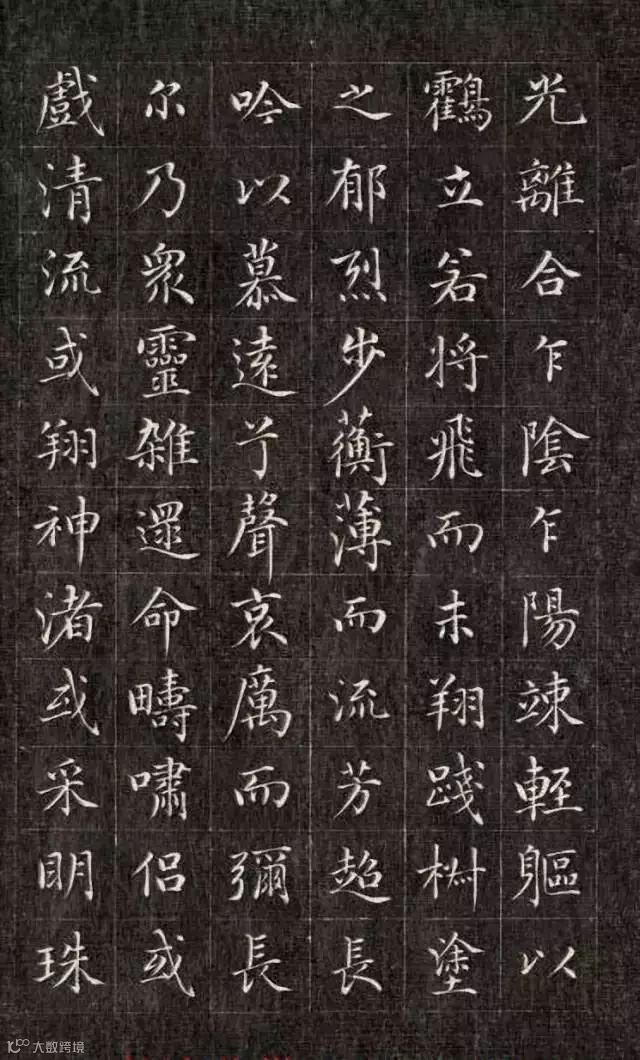 光離合乍陰乍陽竦輕軀以
鸖立若将飛而未翔踐椒塗
之郁烈步蘅薄而流芳超長
吟以慕遠兮聲哀厲而彌長
尔乃衆靈雜遝命疇嘯侶或
戲清流或翔神渚或采明珠
大数跨境